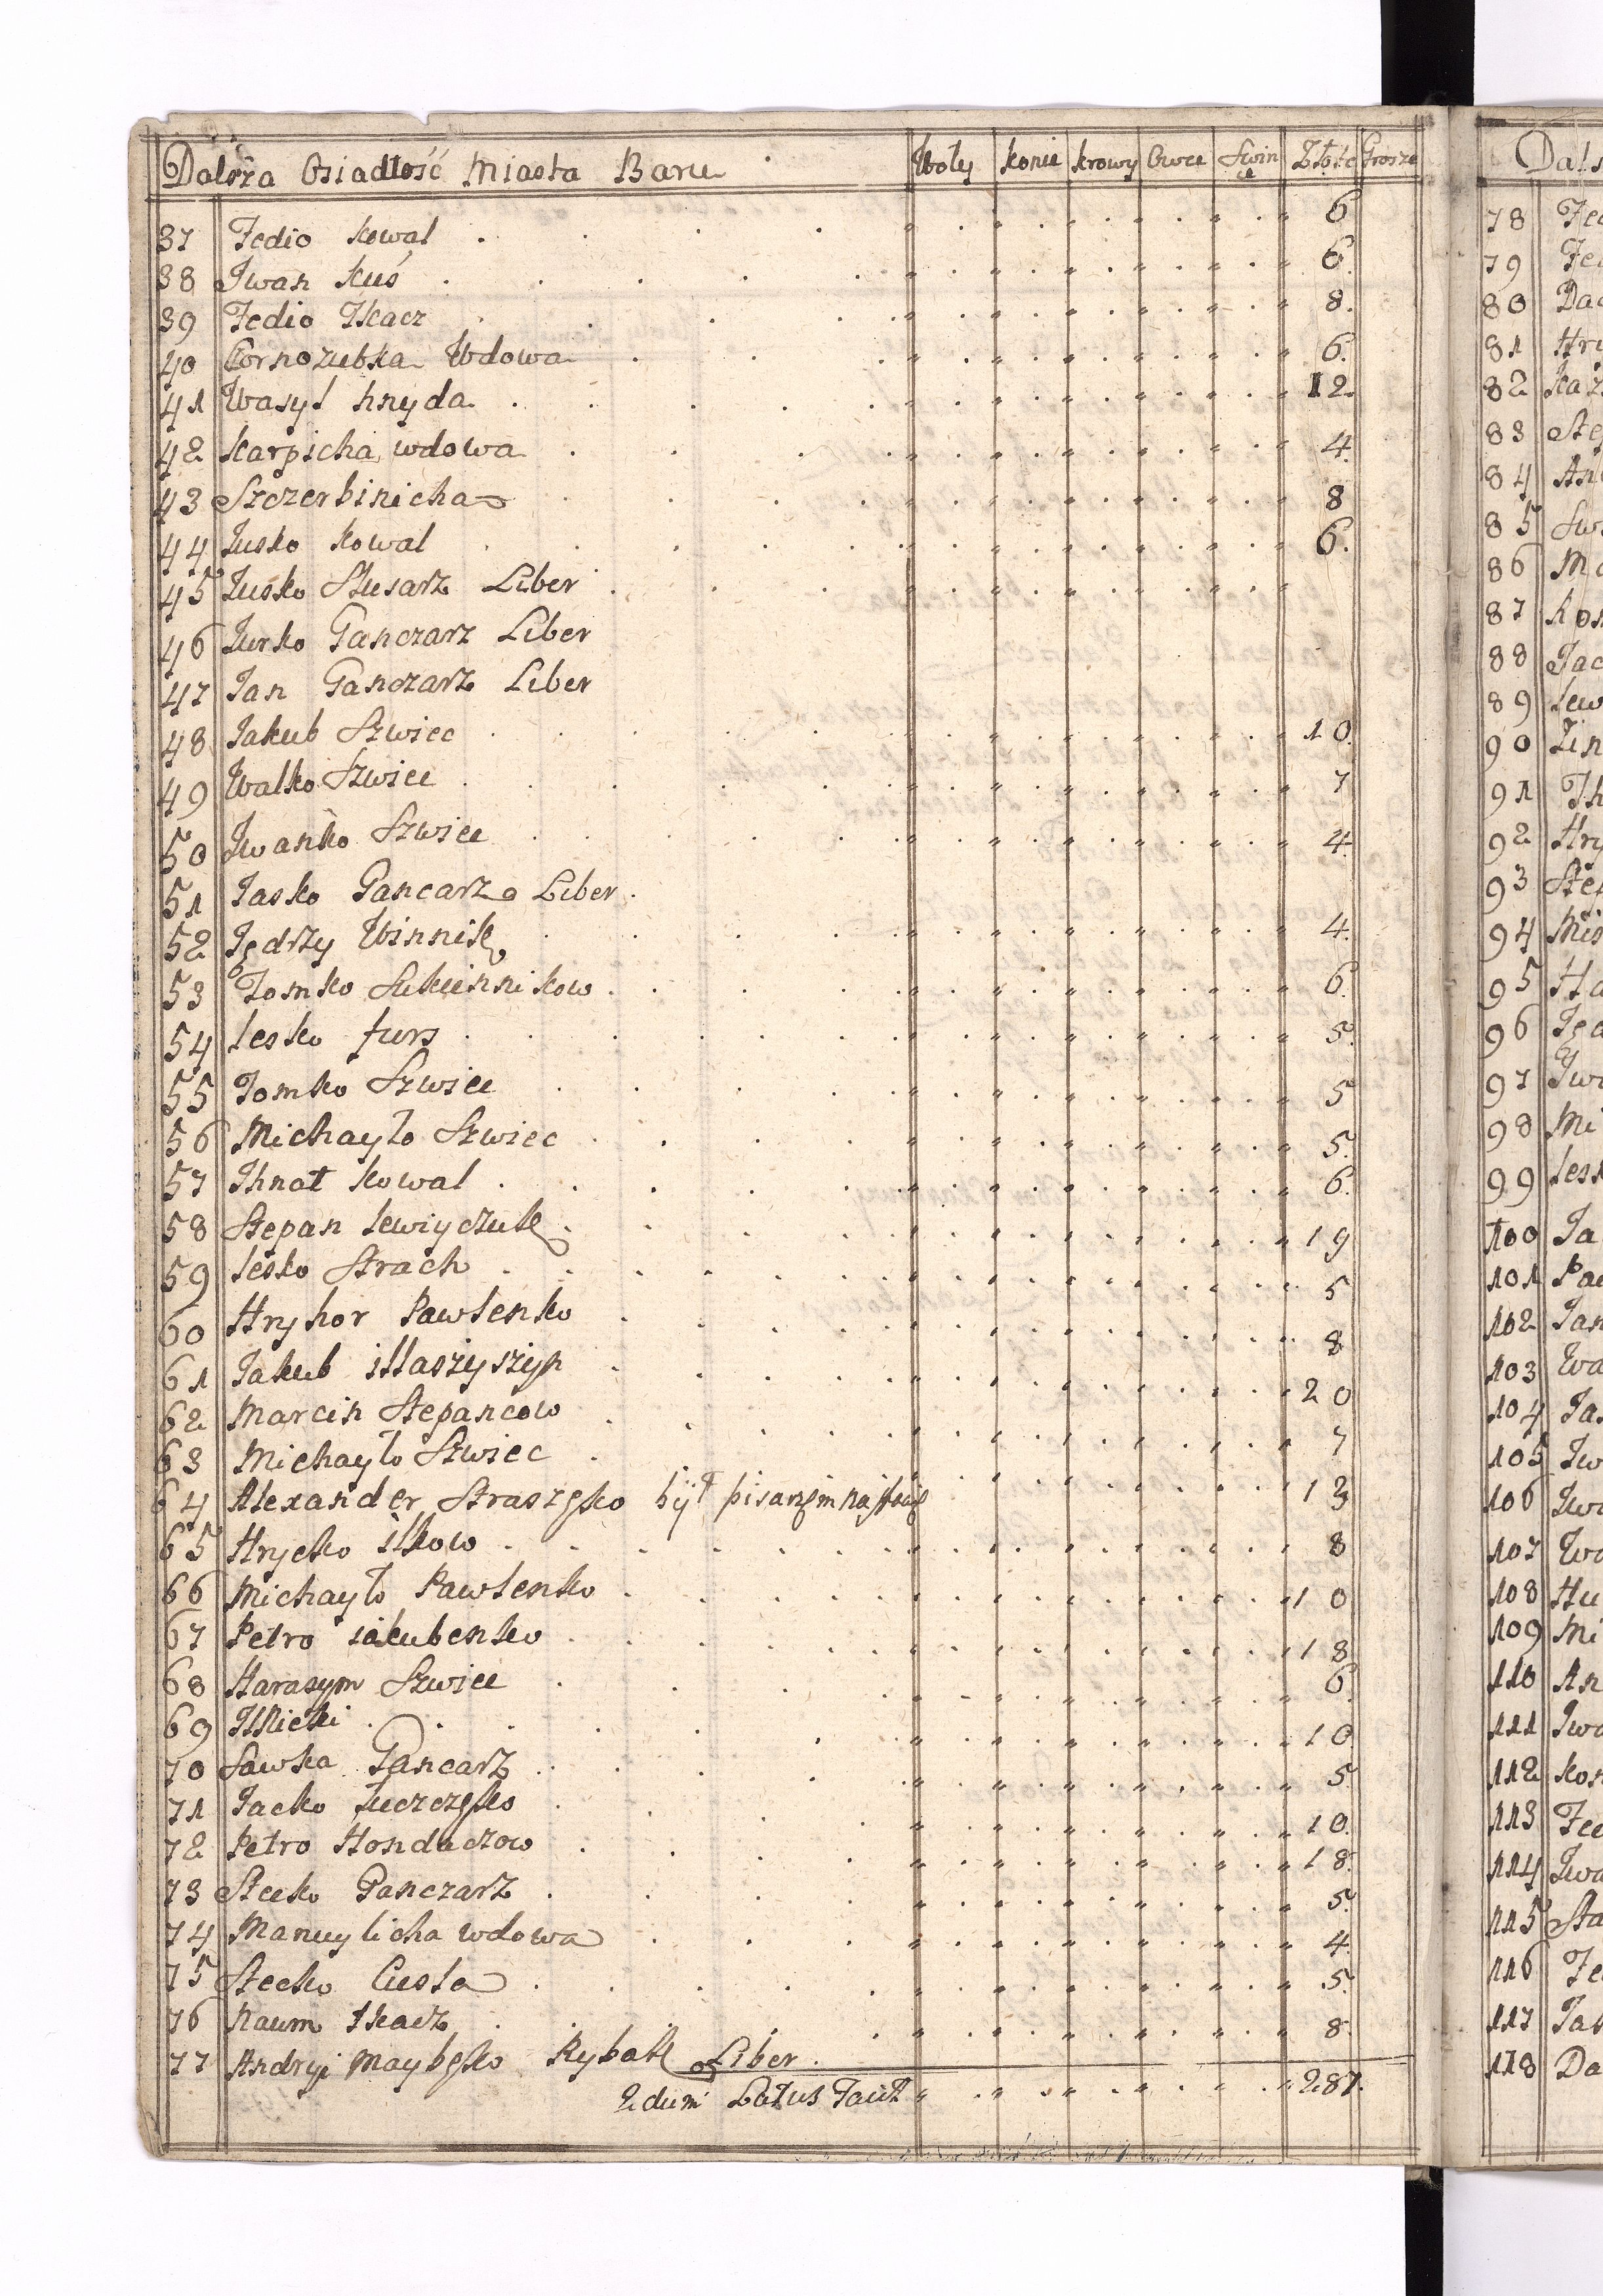 Dalsza Osiadłość Miasta Baru Woły konie krowy Owce Swinie Złote Grosze
37 Fedio kowal 6
38 Iwan kuś 6.
39 Fedio Tkacz 8.
40 Czornozubka Wdowa 6.
41 Wasyl hnyda 12.
42 karpicha wdowa 4.
43 Szczerbinicha 8
44 Lusko kowal 6.
45 Lusko Slusarz Liber
46 Jurko Ganczarz Liber
47 Jan Ganczarz Liber
48 Jakub Szwiec 10.
49 Walko Szwiec 7
50 Iwanko Szwiec 4.
51 Jasko Gancarz Liber.
52 Jędrzy Winnik 4.
53 Tomko Sukiennikow 6.
54 lesko furs 5.
55 Tomko Szwiec 5
56 Michayło Szwiec 5.
57 Ihnat kowal 6.
58 Stepan lewiyczuk 19
59 lesko Strach 5
60 Hryhor Pawlenko 8
61 Jakub illaszyszyn 20
62 Marcin Stepancow 7
63 Michayło Szwiec 13
64 Alexander Straszęko był pisarzem
65 Hrycko ilkow 8
66 Michayło Pawlenko 10
67 Petro iakubenko 18
68 Harasym Szwiec 6.
69 Ilnicki 10
70 Sawka Gancarz 5.
71 Jacko 10.
72 Petro Hondaczow 18.
73 Stecko Ganczarz 5.
74 Manuylicha wdowa 4.
75 Stecko Custa 5.
76 Naum tkacz 8.
77 Andryi Maybęko Rybak Liber.
Latus facit 287.
Dals
78 Fe
79 Fe
80 Da
81 Hry
82 kaz
83 Step
84 An
85 Sw
86 Ma
87 kon
88 Jac
89 lew
90 Zin
91 Ih
92 Hry
93 Step
94 Mis
95 Ha
96 Ję
97 Iw
98 Mi
99 less
100 Ja
101 Pa
102 Jan
103 Wa
104 Ja
105 Iw
106 Iwa
107 Wa
108 Hu
109 Mi
110 An
111 Iwa
112 kon
113 Fe
114 Iwa
115 Sta
116 Fe
117 Jak
118 Da